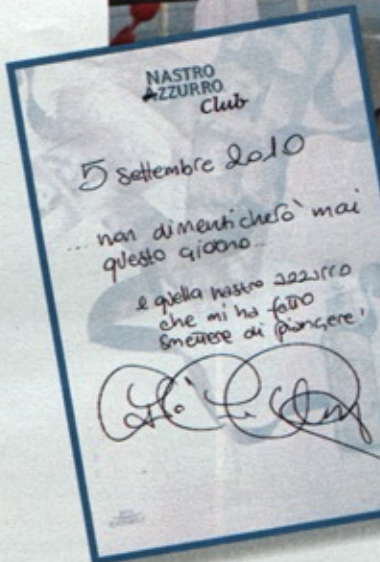 NASTRO
AZZURRO
Club
5 settembre 2010
... non dimenticherò mai
questo giorno...
e quella nastro azzurro
che mi ha fatto
smettere di piangere!